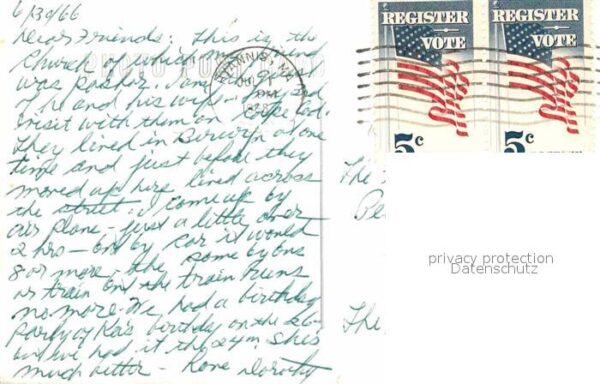 6/30/66
Dear Friends: This is the
Church of which my friend
was Pastor. and a guest
of he and his wife
visit with them on Cape Cod.
They lived in Berwyn at one
time and just before they
moved up here lived across
the street. I come up by
air plane - just a little over
2 hrs - by car it would
8 or more - the same by bus
or train and the train runs
no more. We had a birthday
party of Ka's birthday on the 26
but we had it the 24th. She is
much better - Love Dorothy
HYANNIS, MA
PM
REGISTER
VOTE
5c
REGISTER
VOTE
5c
The
Pe
The
privacy protection
Datenschutz